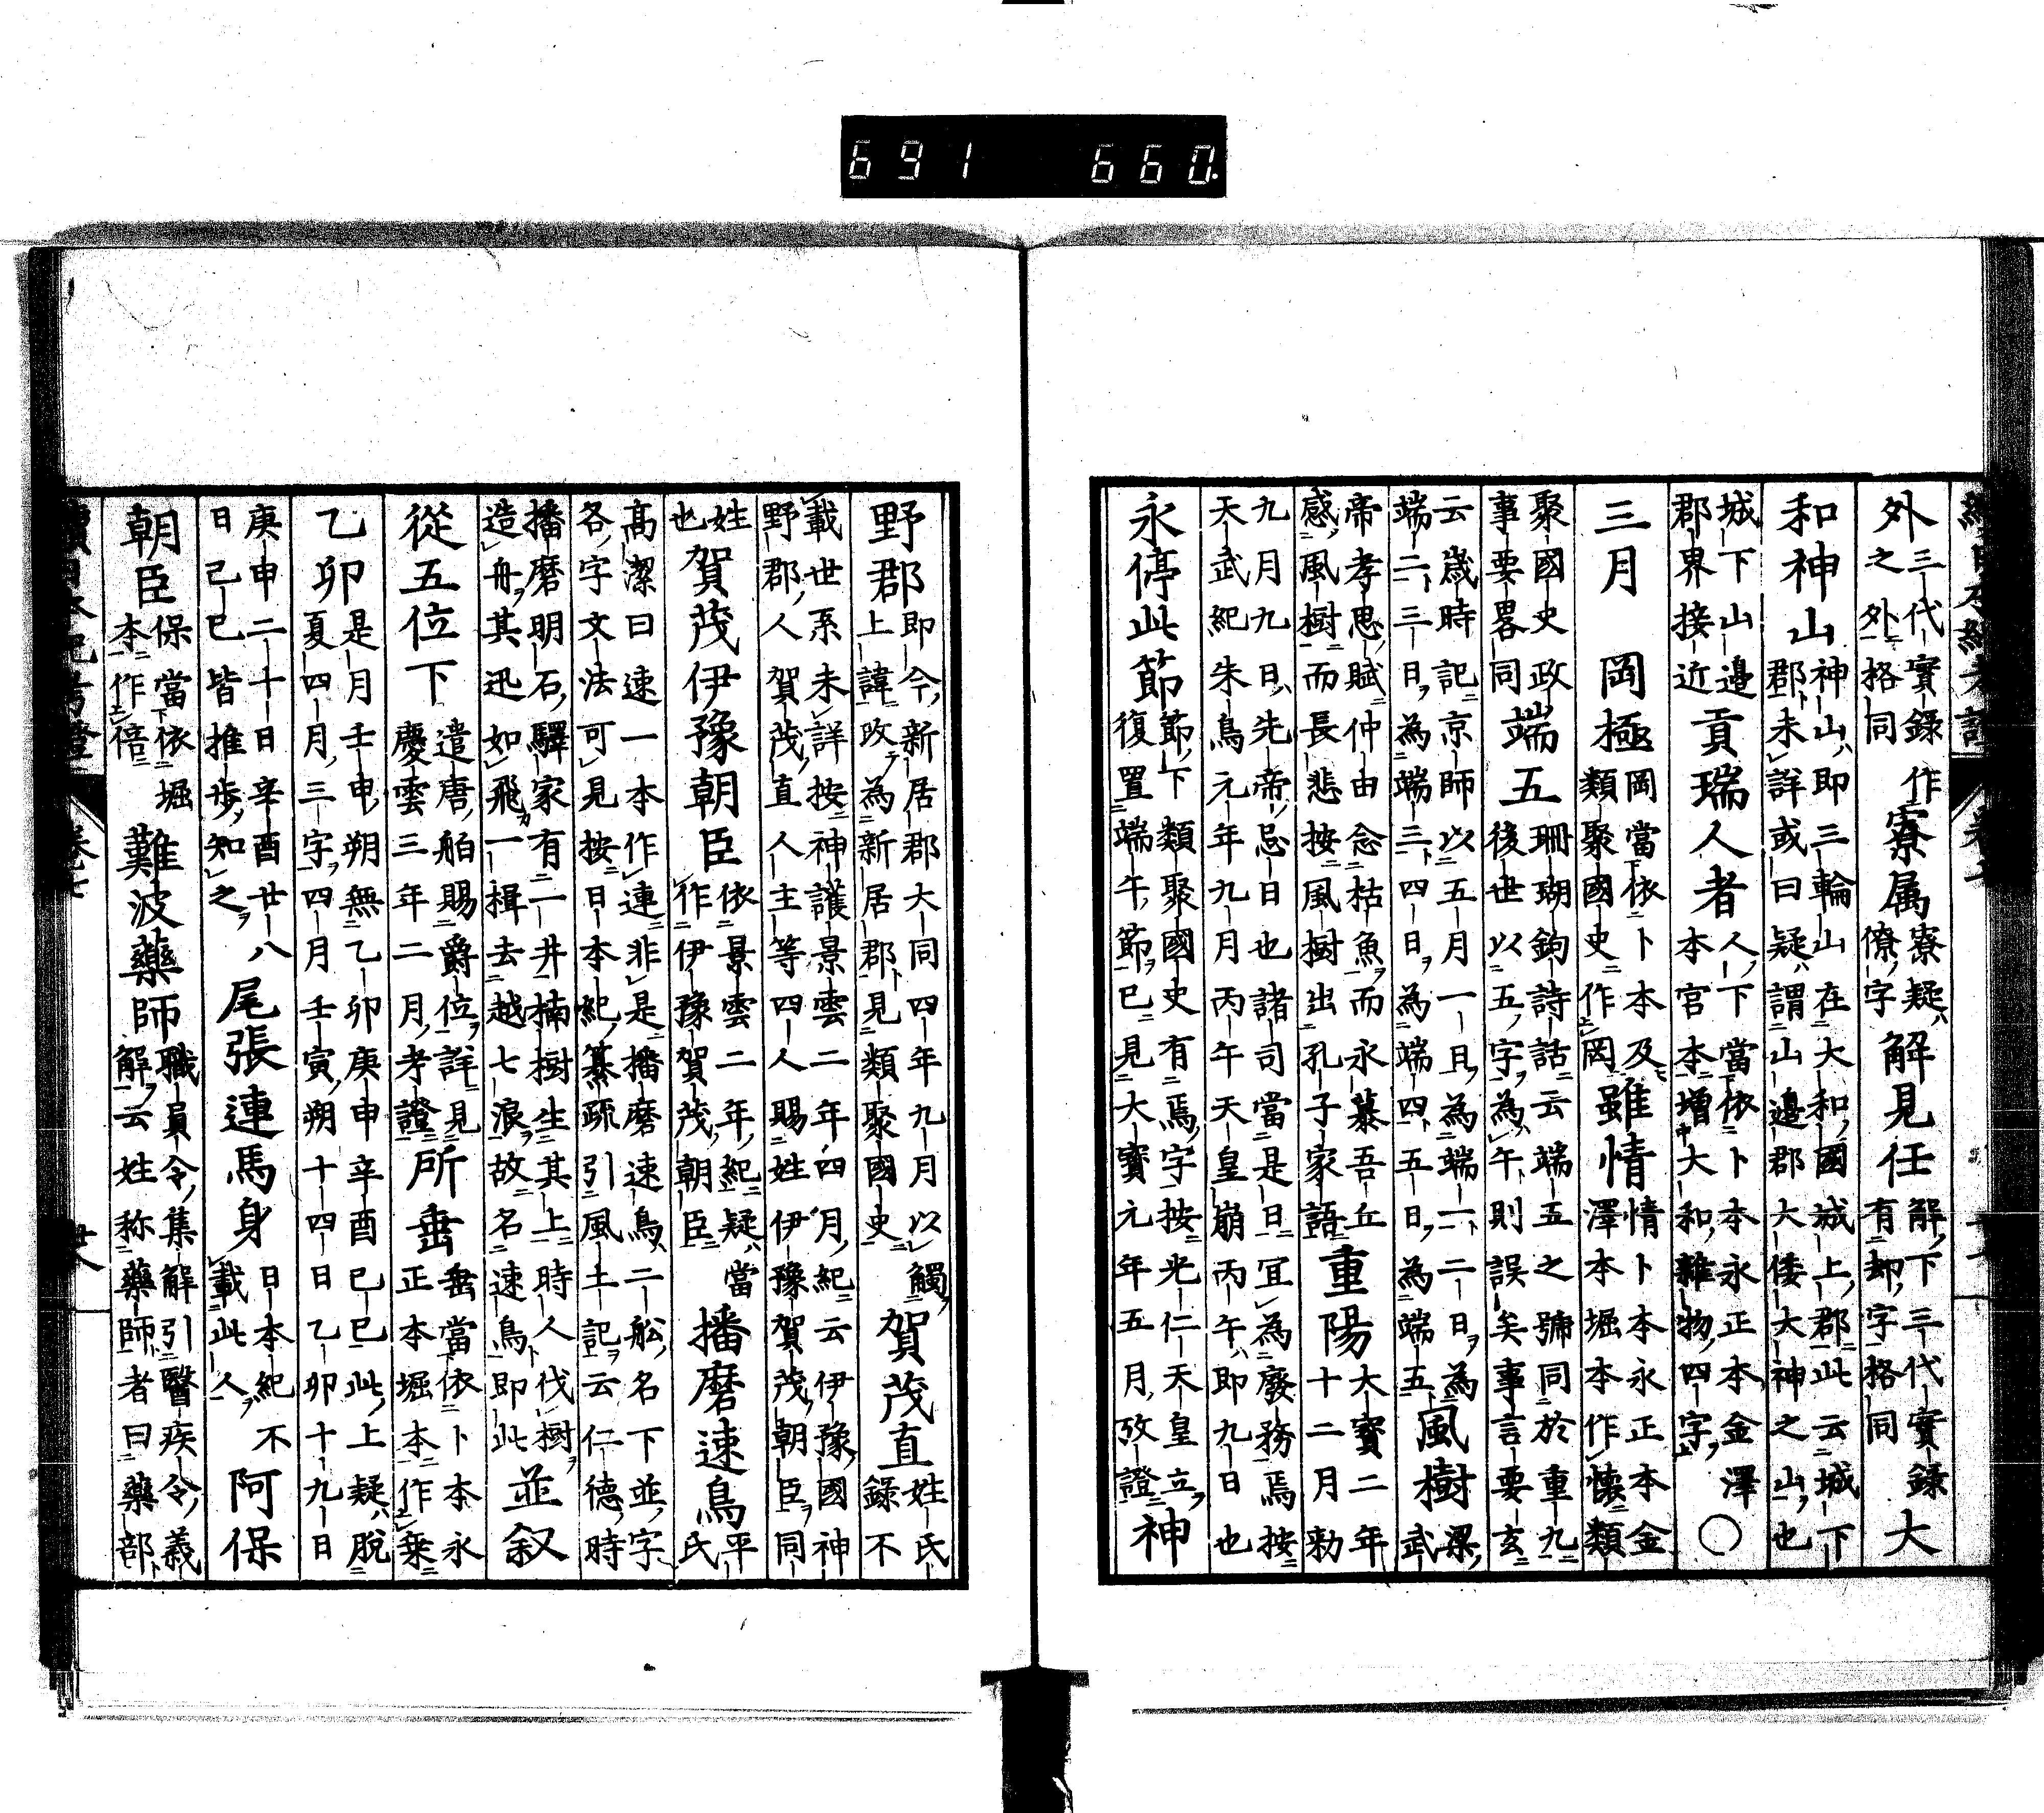 691 660.
外三代實録作
之外格同寮属寮疑
僚字解見任解下三代實録
有却字格同大
和神山神山即三輪山在大和國城上郡此云城下
郡未詳或曰疑謂山邊郡大倭大神之山也
城下山邊
郡界接近貢瑞人者人下當依卜本永正本金澤
本宮本增大和雜物四字〇
三月　岡極岡當依卜本及
類聚國史作岡雖情情卜本永正本金
澤本堀本作懐類
聚國史政
事要畧同端五珊瑚鈎詩話云端五之號同於重九
後世以五字為午則誤矣事言要玄
云歳時記京師以五月一日為端一二日為
端二三日為端三四日為端四五日為端五風樹梁
武
帝孝思賦仲由念枯魚而永慕吾丘
感風樹而長悲按風樹出孔子家語重陽大寶二年
十二月勅
九月九日先帝忌日也諸司當是日宜為廢務焉按
天武紀朱鳥元年九月丙午天皇崩丙午即九日也
永停此節節下類聚國史有焉字按光仁天皇立
復置端午節已見大寶元年五月攷證神
野郡即今新居郡大同四年九月以觸
上諱改為新居郡見類聚國史賀茂直姓氏
録不
載世系未詳按神護景雲二年四月紀云伊豫國神
野郡人賀茂直人主等四人賜姓伊豫賀茂朝臣同
姓
也賀茂伊豫朝臣依景雲二年紀疑當
作伊豫賀茂朝臣播磨速鳥平
氏
高潔曰速一本作連非是播磨速鳥二舩名下並字
各字文法可見按日本紀纂疏引風土記云仁德時
播磨明石驛家有一井楠樹生其上時人伐樹
造舟其迅如飛一楫去越七浪故名速鳥即此並叙
從五位下遣唐舶賜爵位詳見
慶雲三年二月考證所垂垂當依卜本永
正本堀本作乗
乙卯是月壬申朔無乙卯庚申辛酉已巳此上疑脱
夏四月三字四月壬寅朔十四日乙卯十九日
庚申二十日辛酉廿八
日己巳皆推歩知之尾張連馬身日本紀不
載此人阿保
朝臣保當依堀
本作倍難波藥師職員令集解引醫疾令義
解云姓称藥師者曰藥部